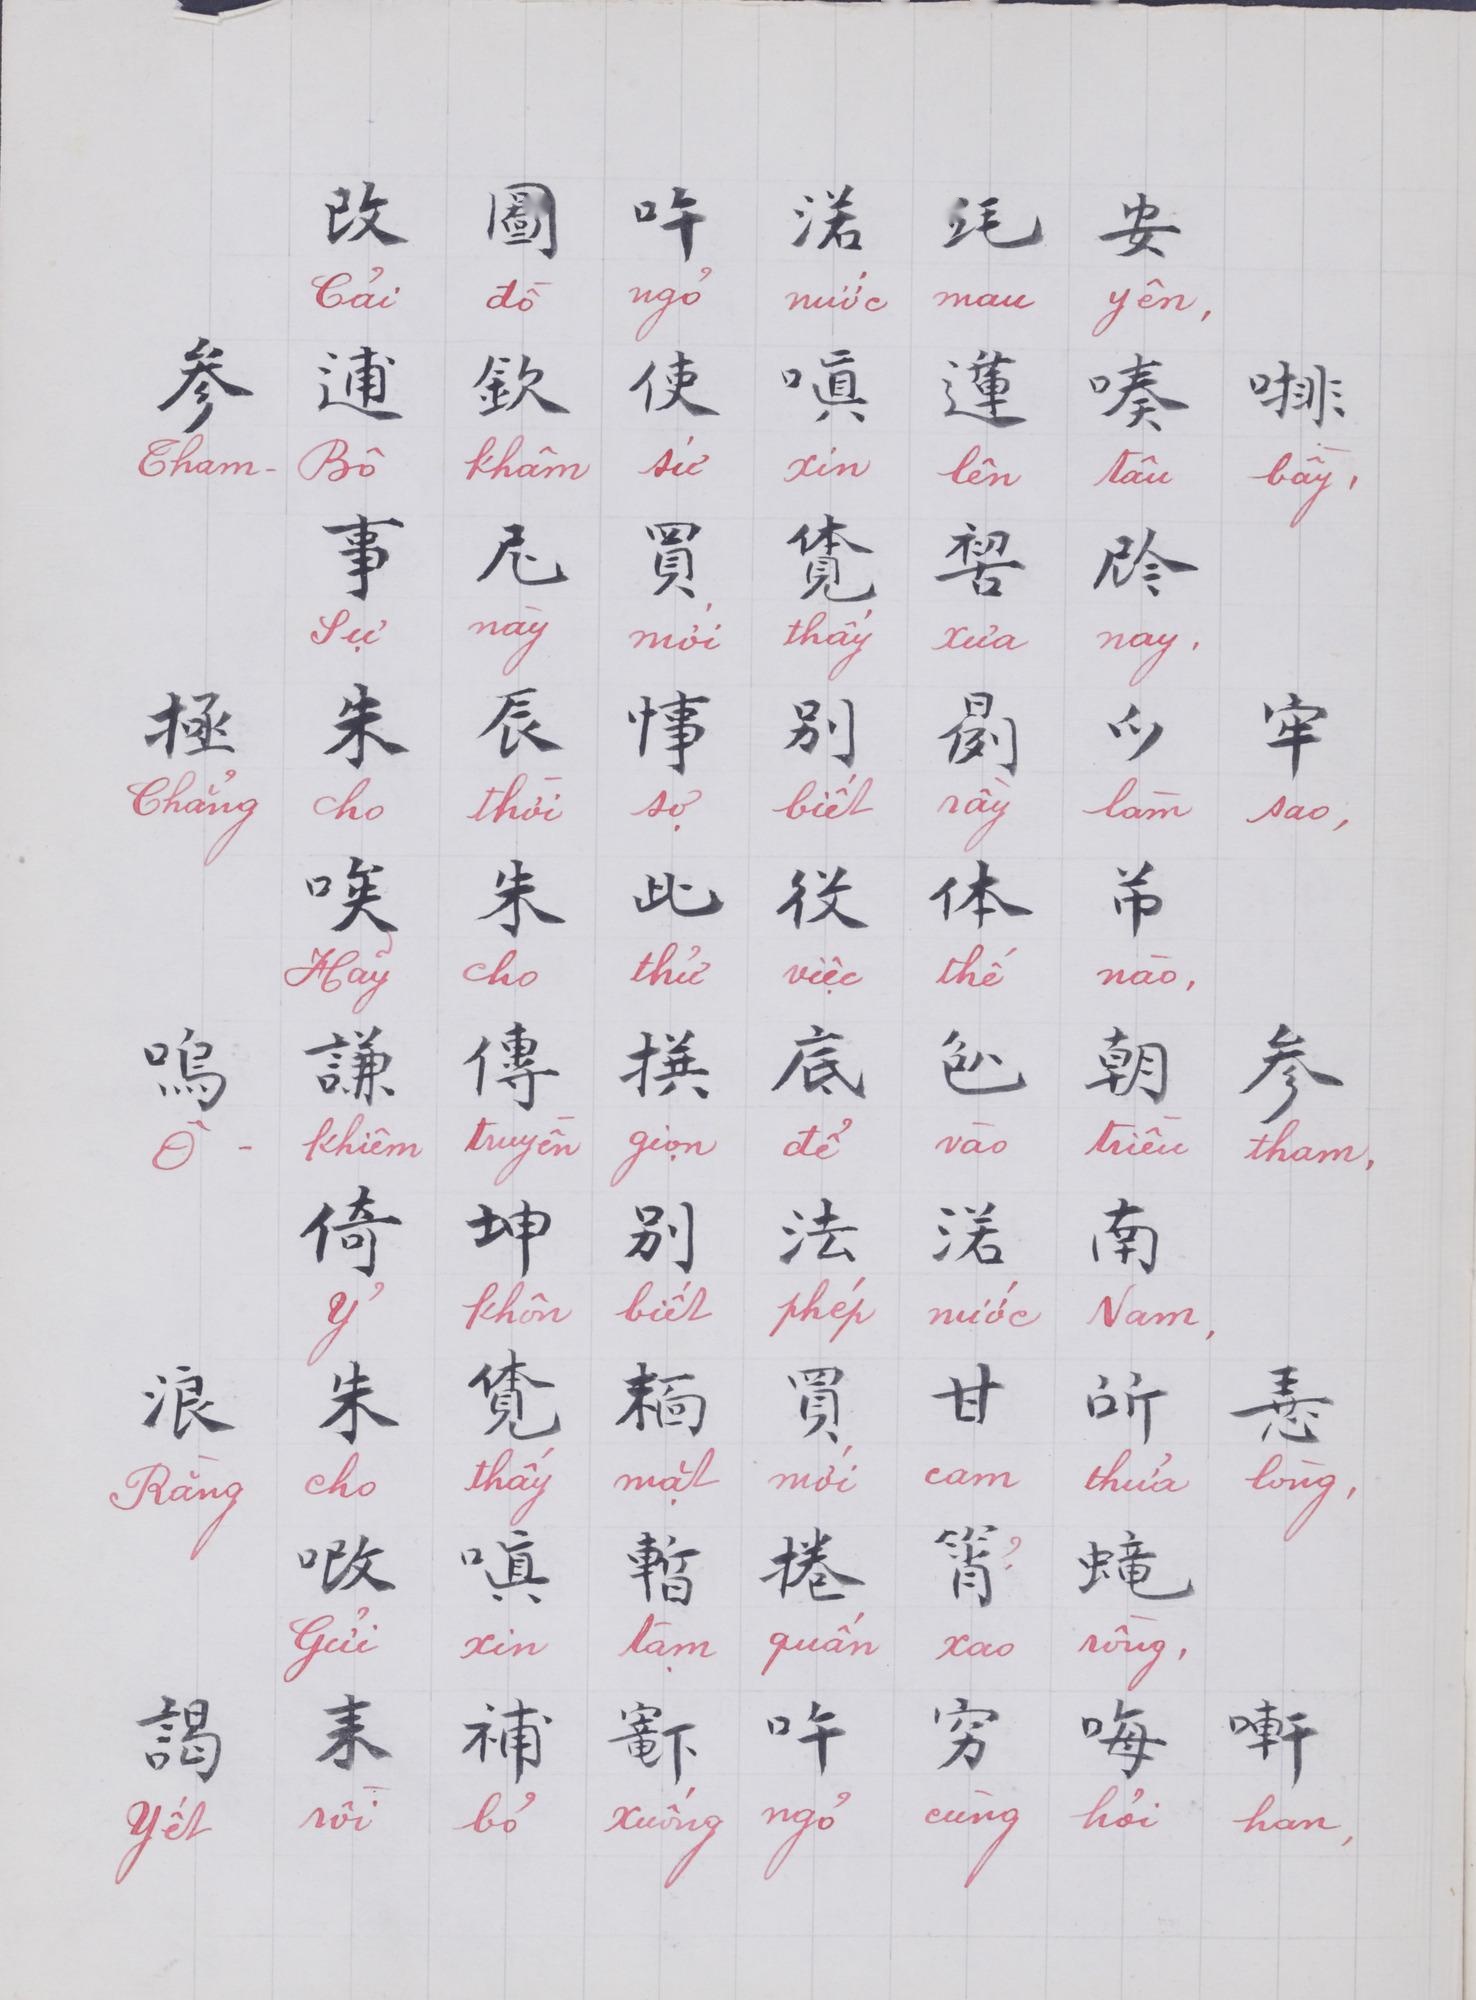 改圖吘渃𣭻安
Cải đồ ngỏ nước mau yên,
参逋欽使嗔蓮嗪𠾦
Tham-Bô khâm sứ xin lên tâu bầy,
事尼買覓𠸗𫢩
Sự này mới thấy xưa nay,
極朱辰事別𣋽𫜵牢
Chẳng cho thời sợ biết rầy làm sao,
唉朱此役体吊
Hãy cho thử việc thế nào,
嗚謙傳撰底𠓨朝参
Ô- khiêm truyền giọn để vào triều tham,
倚坤別法渃南
Ỷ khôn biết phép nước Nam,
浪朱覓𩈘買甘所𢚸
Rằng cho thấy mặt mới cam thửa lòng,
嗔暫捲筲?
Gửi xin tạm quấn xao rồng,
謁耒補吘穷
Yết rồi bỏ xuống ngỏ cùng hỏi han,